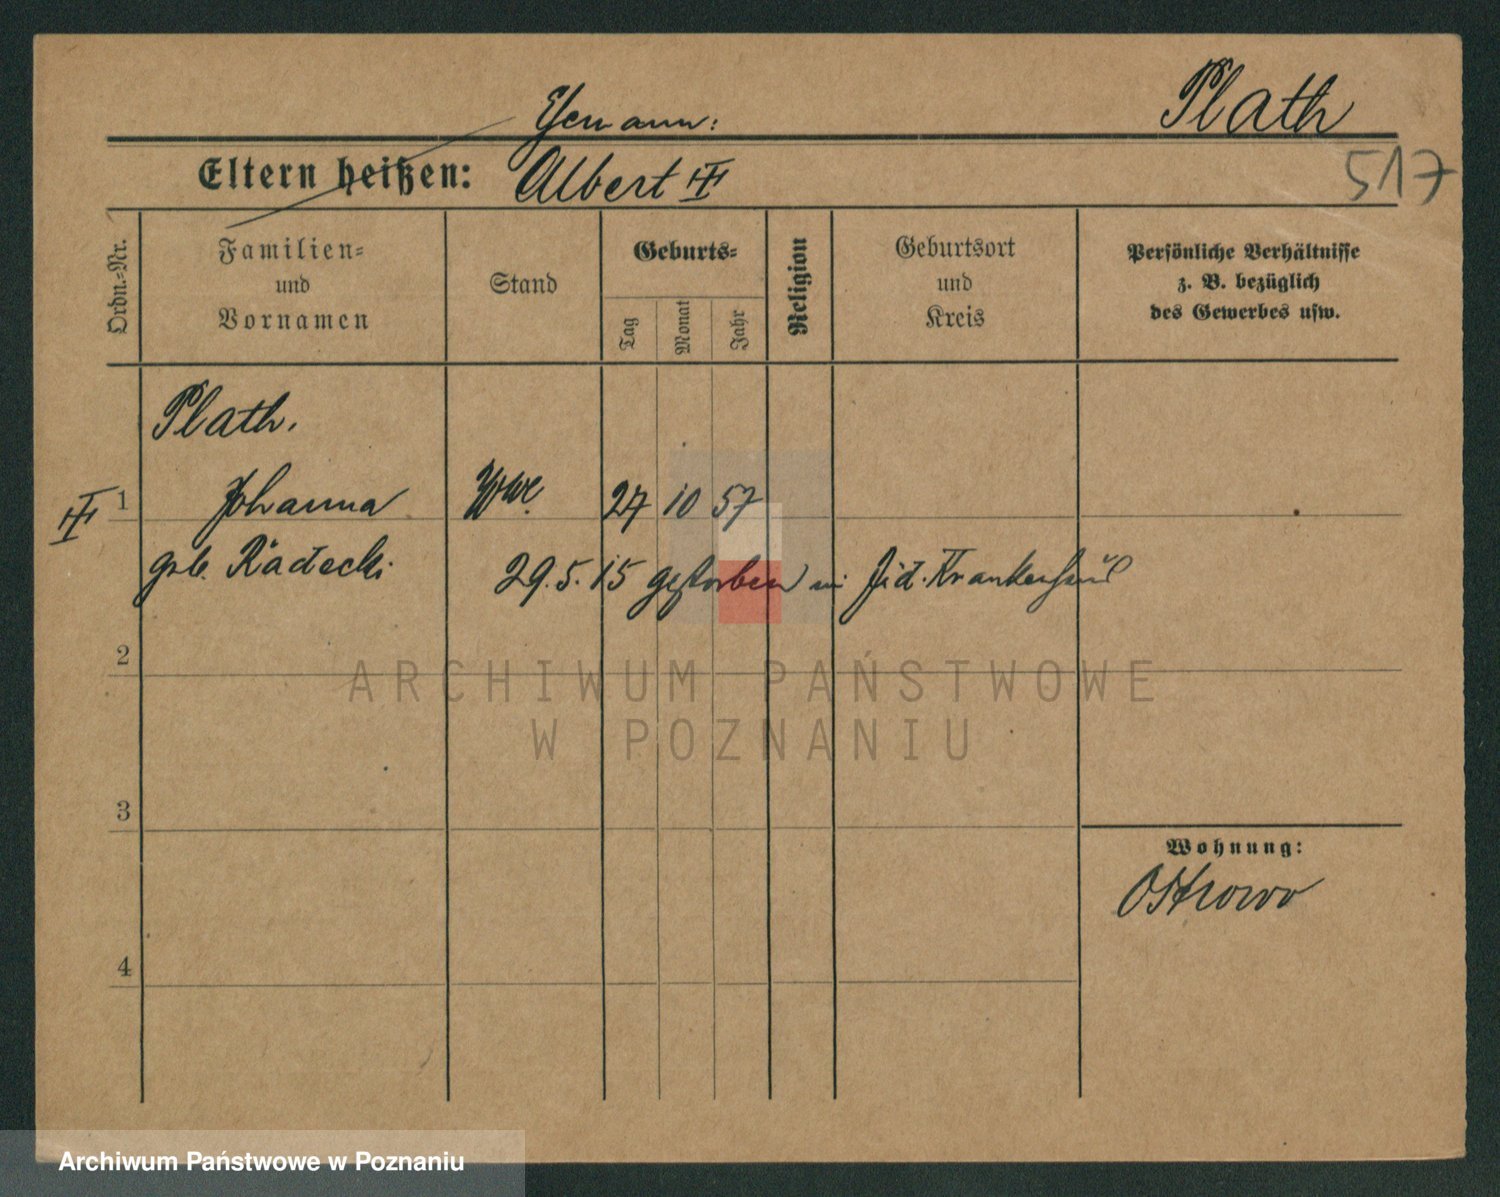 Plath
Ehemann:
Eltern heißen: Albert
517
Ordn.-Nr.
Familien-
und
Vornamen
Stand
Geburts-
Tag
Monat
Jahr
Religion
Geburtsort
und
Kreis
Persönliche Verhältnisse
z. B. bezüglich
des Gewerbes usw.
Plath.
1 Johanna Wwe. 27 10 57
geb. Radecki 29.5.15 gestorben im Jüd. Krankenhaus
2
ARCHIWUM PAŃSTWOWE
W POZNANIU
3
Wohnung:
Ostrowo
4
Archiwum Państwowe w Poznaniu